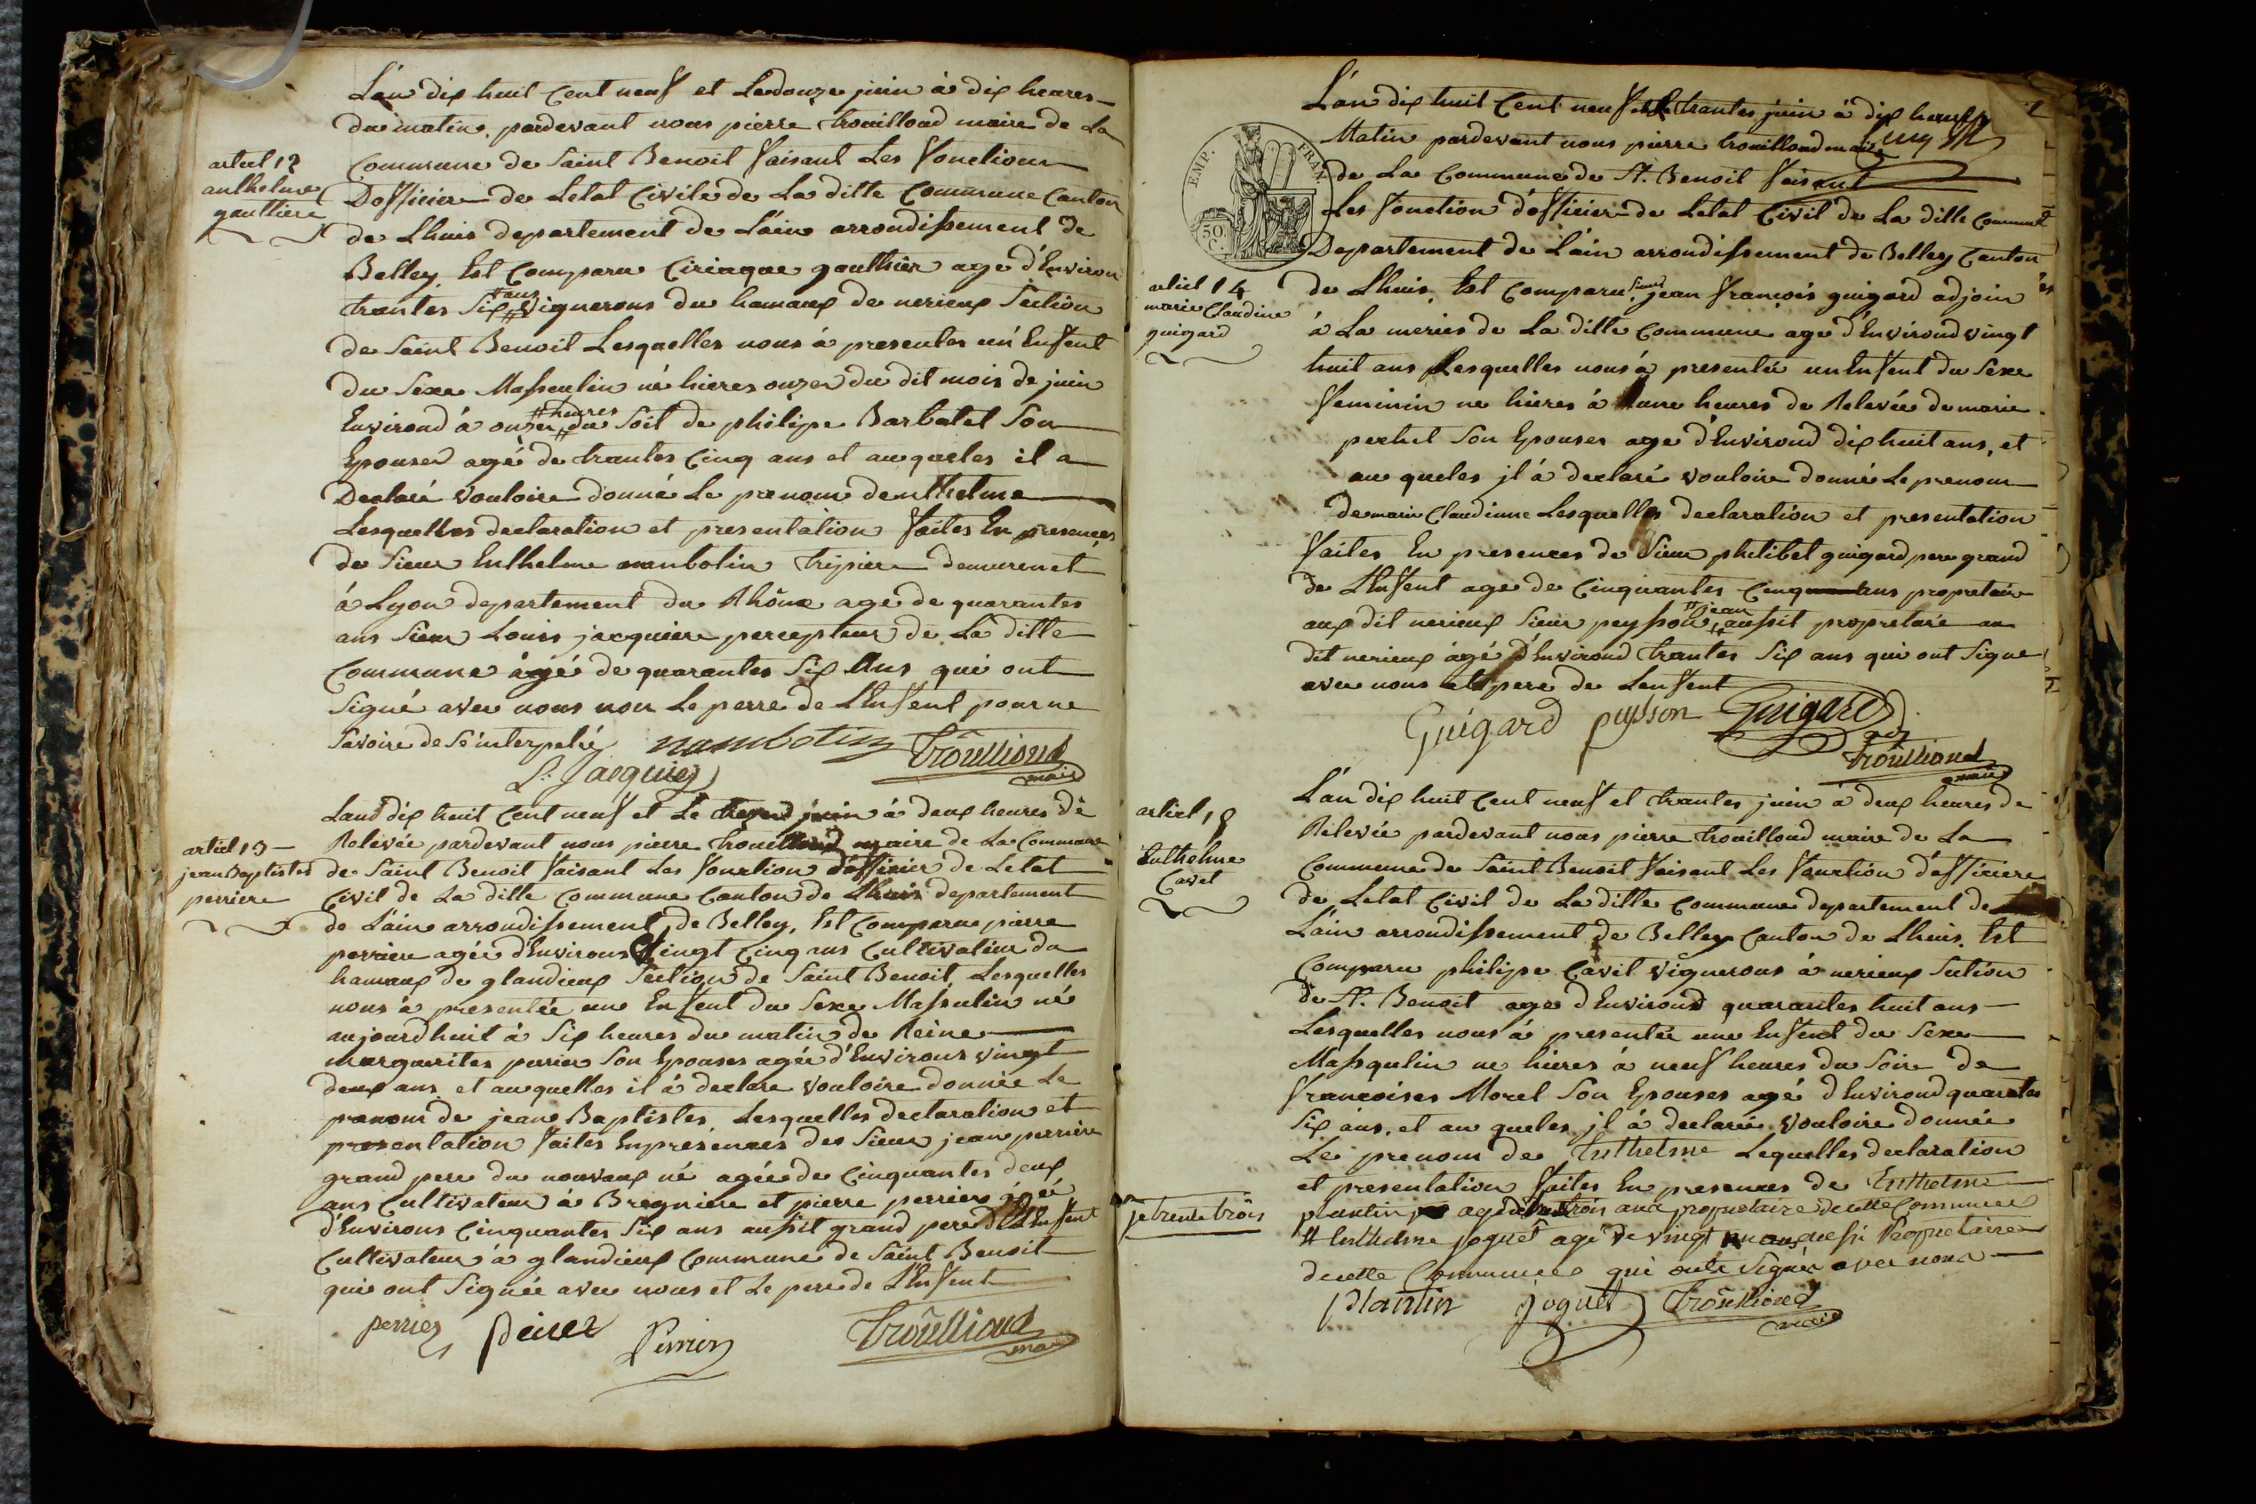 L'an dix huit Cent neuf et Ledouze juin à dix heures
du matin, pardevant nous pierre trouilloud maire de La
articl 12
anthelme
gaulthiere
Commune de Saint Benoit faisant Les fonctions
D'officier de Letat Civile de La ditte Commune Canton
de Lhuis departement de L'ain arrondissement de
Belley. Est Comparu Ciriaque gaulthier age d'Environ
trantes Six # ans Vignerons du hamaux de nerieux Section
de Saint Benoit Lesquelles nous à presentes un Enfent
du Sexe Masculin né hieres onzes du dit mois de juin
Environd à onzes # heures du Soit de philipe Barbatel Son
Epouses agé de trantes Cinq ans et auxqueles il a
Declaré vouloire donné Le prenom denthelme
Lesquelles declaration et presentation faites En presences
de Sieur Enthelme nambotin tripiere demurent
à Lyon departement du Rhône agé de quarantes
ans Sieur Louis jacquiere percepteur de La ditte
Commune âgé de quarantes Six Ans qui ont
Signé avec nous non Le perre de L'Enfent pour ne
Savoire de Se interpelé nambotin Trouillioud
maire
L. Jacquier
articl 13
jean Baptistes
perriere
Land dix huit Cent neuf et Le juin à deux heures de
Relevée pardevant nous pierre trouilloud maire de La Commune
de Saint Benoit faisant Les fonction d'officier de Letat
Civil de La ditte Commune Canton de Lhuis departement
de L'ain arrondissement de Belley, Est Comparue pierre
perriere agée d'Environs Vingt Cinq ans Cultivateur du
hamaux de glandieux Section de Saint Benoit, Lesquelles
nous à presentée une Enfent du Sexe Masculin né
aujourdhuit à Six heures du matin de Reine
Marguerites perrier Son Epouses agée d'Environs vingt
deux ans, et auquelles il à declare vouloire donnée Le
prenom de jean Baptistes, Lesquelles declaration et
presentation faites En presénces des Sieur jean perriere
grand pere du nouvaux né agée de Cinquantes deux
ans Cultivateur à Bregniere et pierre perrier âgé
d'Environs Cinquantes Six ans aussit grand pere de L'Enfent
Cultivateur à glandieux Commune de Saint Benoit
qui ont Signée avec nous et Le pere de L'Enfent
perrier perier Perrier Trouillioud
maire
EMP. FRAN.
50 C.
L'an dix huit Cent neuf et trantes juin à dix heures
Matin pardevant nous pierre trouilloud maire
de La Commune de St. Benoit faisant
Les fonction d'officier de Letat Civil de La ditte Commune
Departement de L'ain arrondissement de Belley Canton
articl 14
marie Claudine
guigard
de Lhuis, Est Comparu Sieur jean françois guigard adjoin
à La meries de La ditte Commune age d'Environd vingt
huit ans Lesquelles nous à presentée un Enfent du Sexe
feminin ne hieres à une heures de Relevée de marie
pechet Son Epouses age d'Environd dix huit ans, et
auxqueles jl à declaré vouloire donné Le prenom
de marie Claudinne Lesquelles declaration et presentation
faites En presences de Sieur philibet guigard pere grand
de L'Enfent age de Cinquantes Cinq ans propretaire
aux dit nerieux Sieur peysson # jean aussit propretaire au
dit nerieux âgé d'Environd trantes Six ans qui ont Signe
avec nous et pere de Lenfent
Guigard peysson Guigard
adj
Trouillioud
maire
articl 18
Enthelme
Cavet
L'an dix huit Cent neuf et trantes juin à deux heures de
Relevée pardevant nous pierre trouilloud maire de La
Commune de Saint Benoit faisant Les fonction d'officiere
de Letat Civil de La ditte Commune departement de
L'ain arrondissement de Belley Canton de Lhuis. Est
Comparu philipe Cavit Vignerons à nerieux Section
de St. Benoit age d'Environd quarantes huit ans
Lesquelles nous à presentée une Enfent du Sexe
Masqulin ne hieres à neuf heures du Soire de
françoises Morel Son Epouses agé d'Environd quarantes
Six ans, et auxqueles jl à declarée Vouloire donnée
Le prenom de Enthelme Lequelles declaration
et presentation faites En presences de Enthelme
# de trente trois
plantin agé trois ans propriétaire de cette Commune
# Enthelme joguet agé de vingt ans aussi Propriétaire
de cette Commune qui onts Signés avec nous
plantin joguet Trouillioud
maire